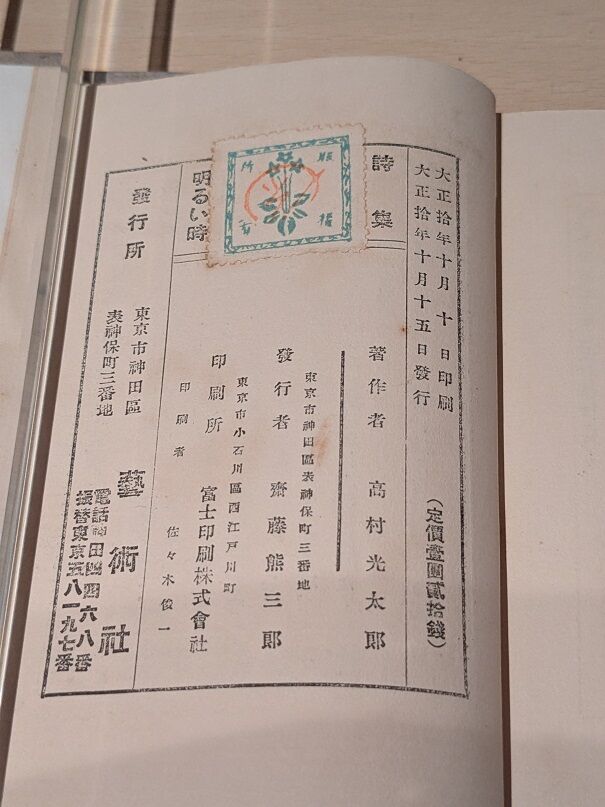 大正拾年十月十日印刷
大正拾年十月十五日發行
(定價壹圓貳拾錢)
詩集
明るい時
著作者 高村光太郎
東京市神田區表神保町三番地
發行者 齋藤熊三郎
東京市小石川區西江戸川町
印刷所 富士印刷株式會社
印刷者 佐々木俊一
發行所
東京市神田區
表神保町三番地
藝術社
電話神田四四六八番
振替東京五八一九七番